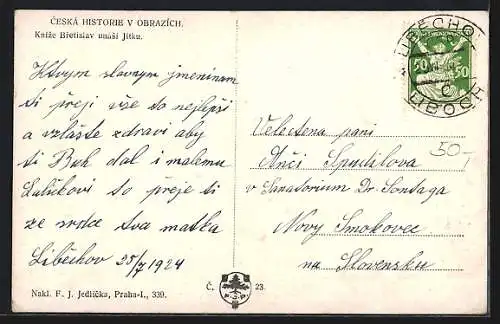 ČESKÁ HISTORIE V OBRAZÍCH.
Kníže Břetislav unáší Jitku.
Ktvym slavnym jmeninam
ti přeji vše to nejlepši
a vzlašte zdravi aby
ti Buh dal i malemu
Luličkovi to přeje ti
ze srdce tva matka
Liběchov 25/7 1924
Nakl. F. J. Jedlička, Praha-I., 339.
Č. 23.
LIBĚCHOV
LIBOCH
50 50
50,-
Velectena pani
Anči Spudilova
v Sanatorium Dr. Sontaga
Novy Smokovec
na Slovensku